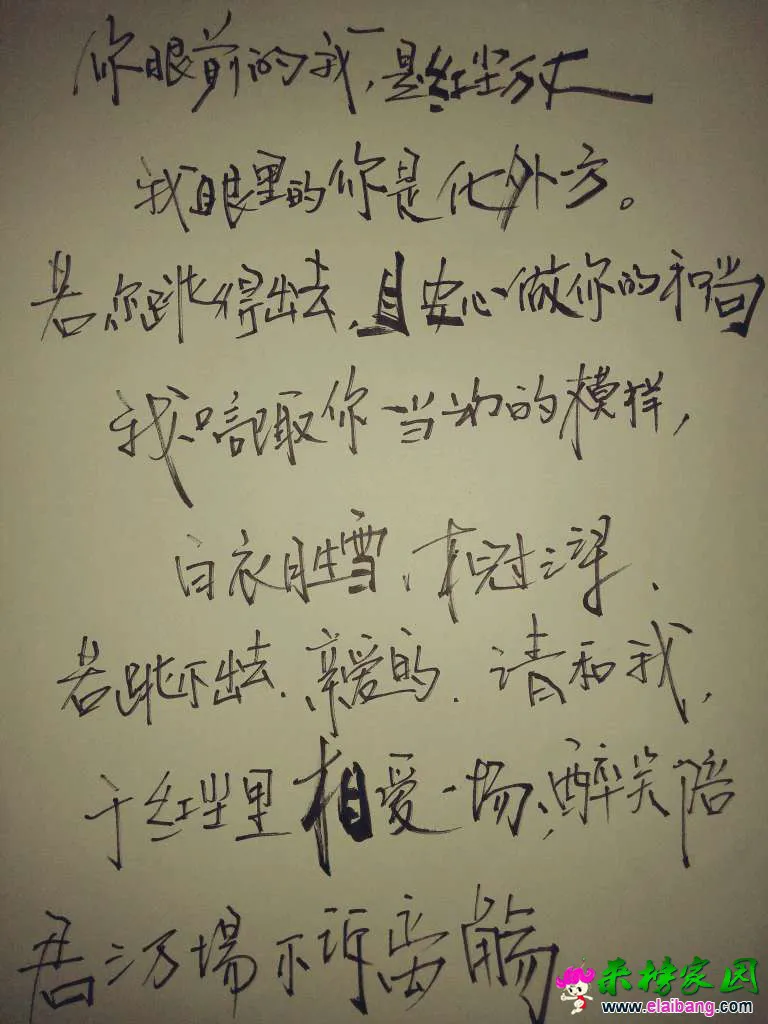 你眼前的我,是红尘万丈
我眼里的你是化外一方。
若你跳得出去,且安心做你的和尚
我只記取你当初的模样,
白衣胜雪、才冠三梁、
若跳不出去、亲爱的、请和我,
于红尘里相爱一场、醉笑陪
君三万場不诉离觞
来榜家园
www.elaibang.com